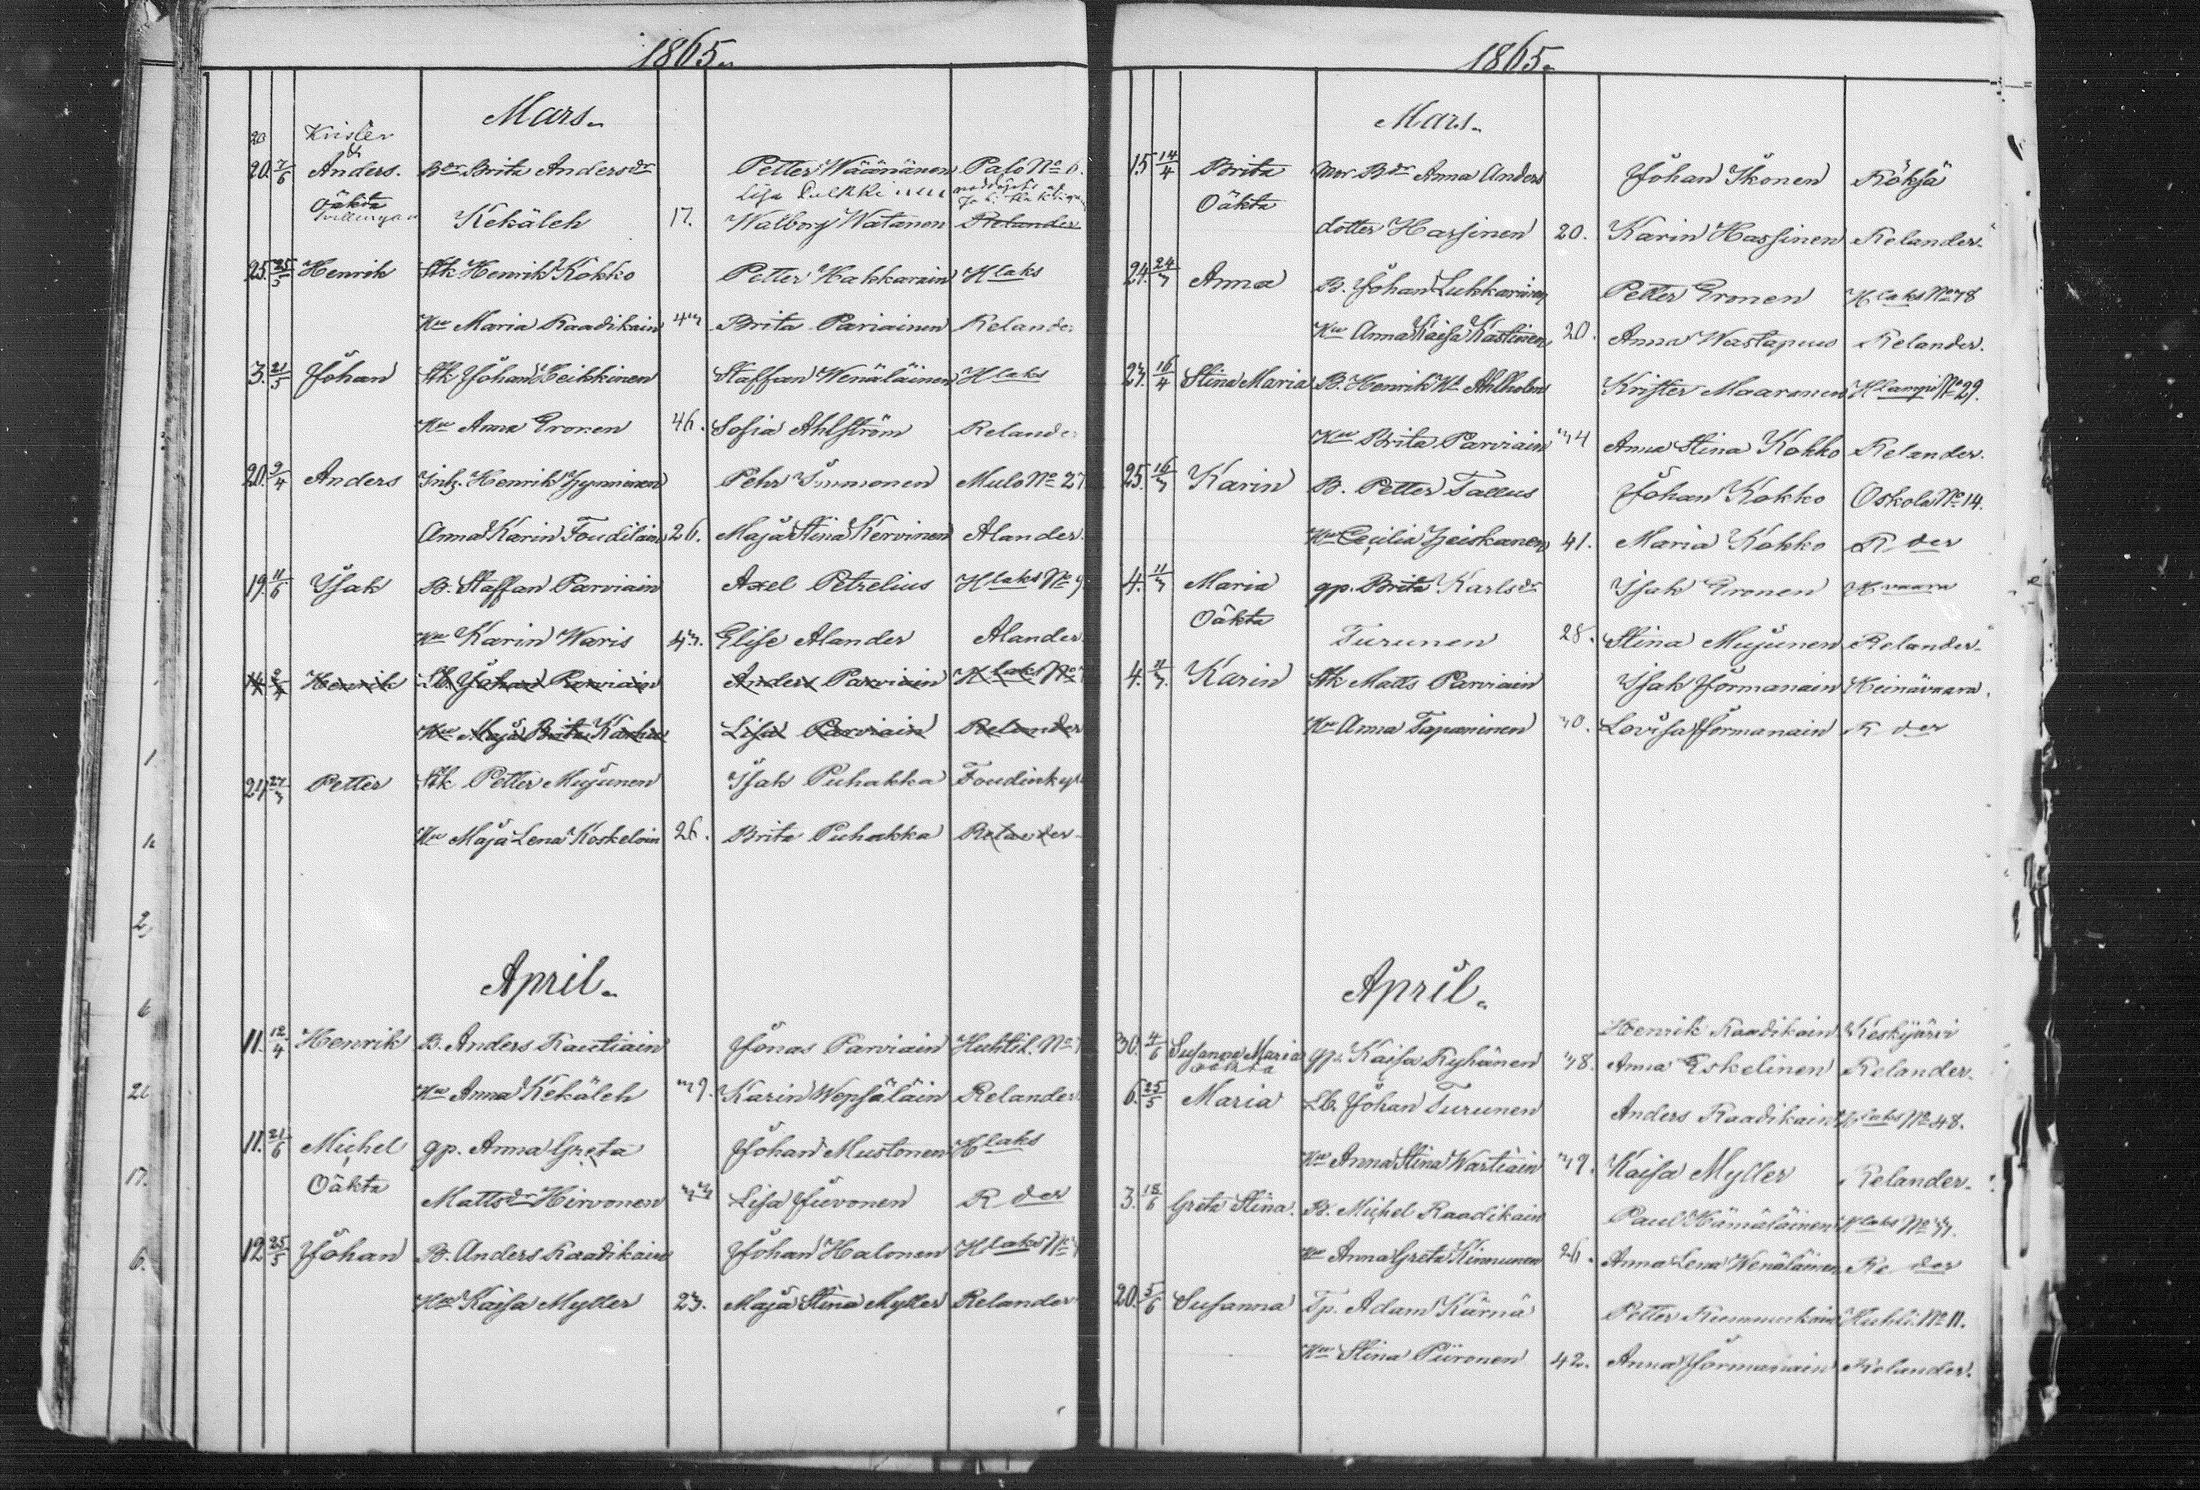 1865.
Mars.
20 Krister
&
20. 7/6 Anders. Bdr Brita Andersdr Petter Wäänänen Paso No 6.
Oäkta Lisa Pulkkinen
Tvillingar Kekäleh 17. Walborg Watanen Relander
25. 25/5 Henrik Stk Henrik Kokko Petter Hakkarain Hlaks
Hu Maria Raadikain 43 Brita Pariainen Relander
3. 21/5 Johan Stk Johan Heikkinen Staffan Wenäläinen Hlaks
Hu Anna Gronen 46. Sofia Ahlström Relande
20. 9/4 Anders Inh. Henrik Hynninen Pehr Simmonen Mulo No 27
Anna Karin Toudilain 26. Maja Stina Kervinen Alander.
19. 11/6 Isak B. Staffan Parviain Axel Petrelius Hlaks No
Hu Karin Waris 43. Elise Alander Alander
14. Henrik Lb Johan Parviain Anders Parviain Hlaks No
Hu Maja Brita Karhu Lisa Parviain Relander
21. 27/3 Petter Stk Petter Mujunen Isak Puhakka Toudinky
Hu Maja Lena Koskeloin 26. Brita Puhakka Relander
April.
11. 12/4 Henrik B. Anders Rautiain Jonas Parviain Huhtil. No
Hu Anna Kekäleh 39. Karin Wepsäläin Relander
11. 21/6 Michel gp. Anna Greta Johan Mustonen Hlaks
Oäkta Mattsdr Hirvonen 33 Lisa Juvonen R der
12 25/5 Johan B. Anders Raadikain Johan Halonen Hlaks No
Hu Kaisa Myller 23. Maja Stina Myller Relander
1865.
Mars.
15 14/4 Brita Mor Bdr Anna Anders Johan Ikonen Röksä
Oäkta dotter Hassinen 20. Karin Hassinen Relander.
24. 24/3 Anna B. Johan Lukkarinen Petter Gronen Hlaks No 78
Hu Anna Kaisa Kastinen 20. Anna Wastapuus Relander.
27. 16/4 Stina Maria B. Henrik Hk Ahlholm Krister Maaranen Hlampi No 29.
Hu Brita Parviain 34 Anna Stina Kokko Relander.
25. 16/3 Karin B. Petter Tallus Johan Kokko Oskola No 14.
Hu Cecilia Heiskanen 41. Maria Kokko R der
4. 11/3 Maria gp. Brita Karlsdr Isak Gronen Hvaara
Oäkta Turunen 28. Stina Mujunen Relander.
4. 11/3. Karin Stk Matts Parviain Isak Jormanain Heinävaara.
Hu Anna Tapaninen 30. Lovisa Jormanain R der
April.
Henrik Raadikain Keskijärvi
30. 4/6 Susanna Maria gp. Kaisa Ryhänen 38. Anna Eskelinen Relander.
oäkta
6. 25/5 Maria Lb. Johan Turunen Anders Raadikain Hlaks No 48.
Hu Anna Stina Wartiain 39. Kaisa Myller Relander.
3. 18/6 Greta Stina. B. Michel Raadikain Paul Hämäläinen Hlaks No 37.
Hu Anna Greta Kinnunen 26. Anna Lena Wenäläinen Re der
20. 5/6 Susanna Tp. Adam Kärnä Petter Kummunkoin Huhti. No 11.
Hu Stina Piironen 42. Anna Jormanain Relander.